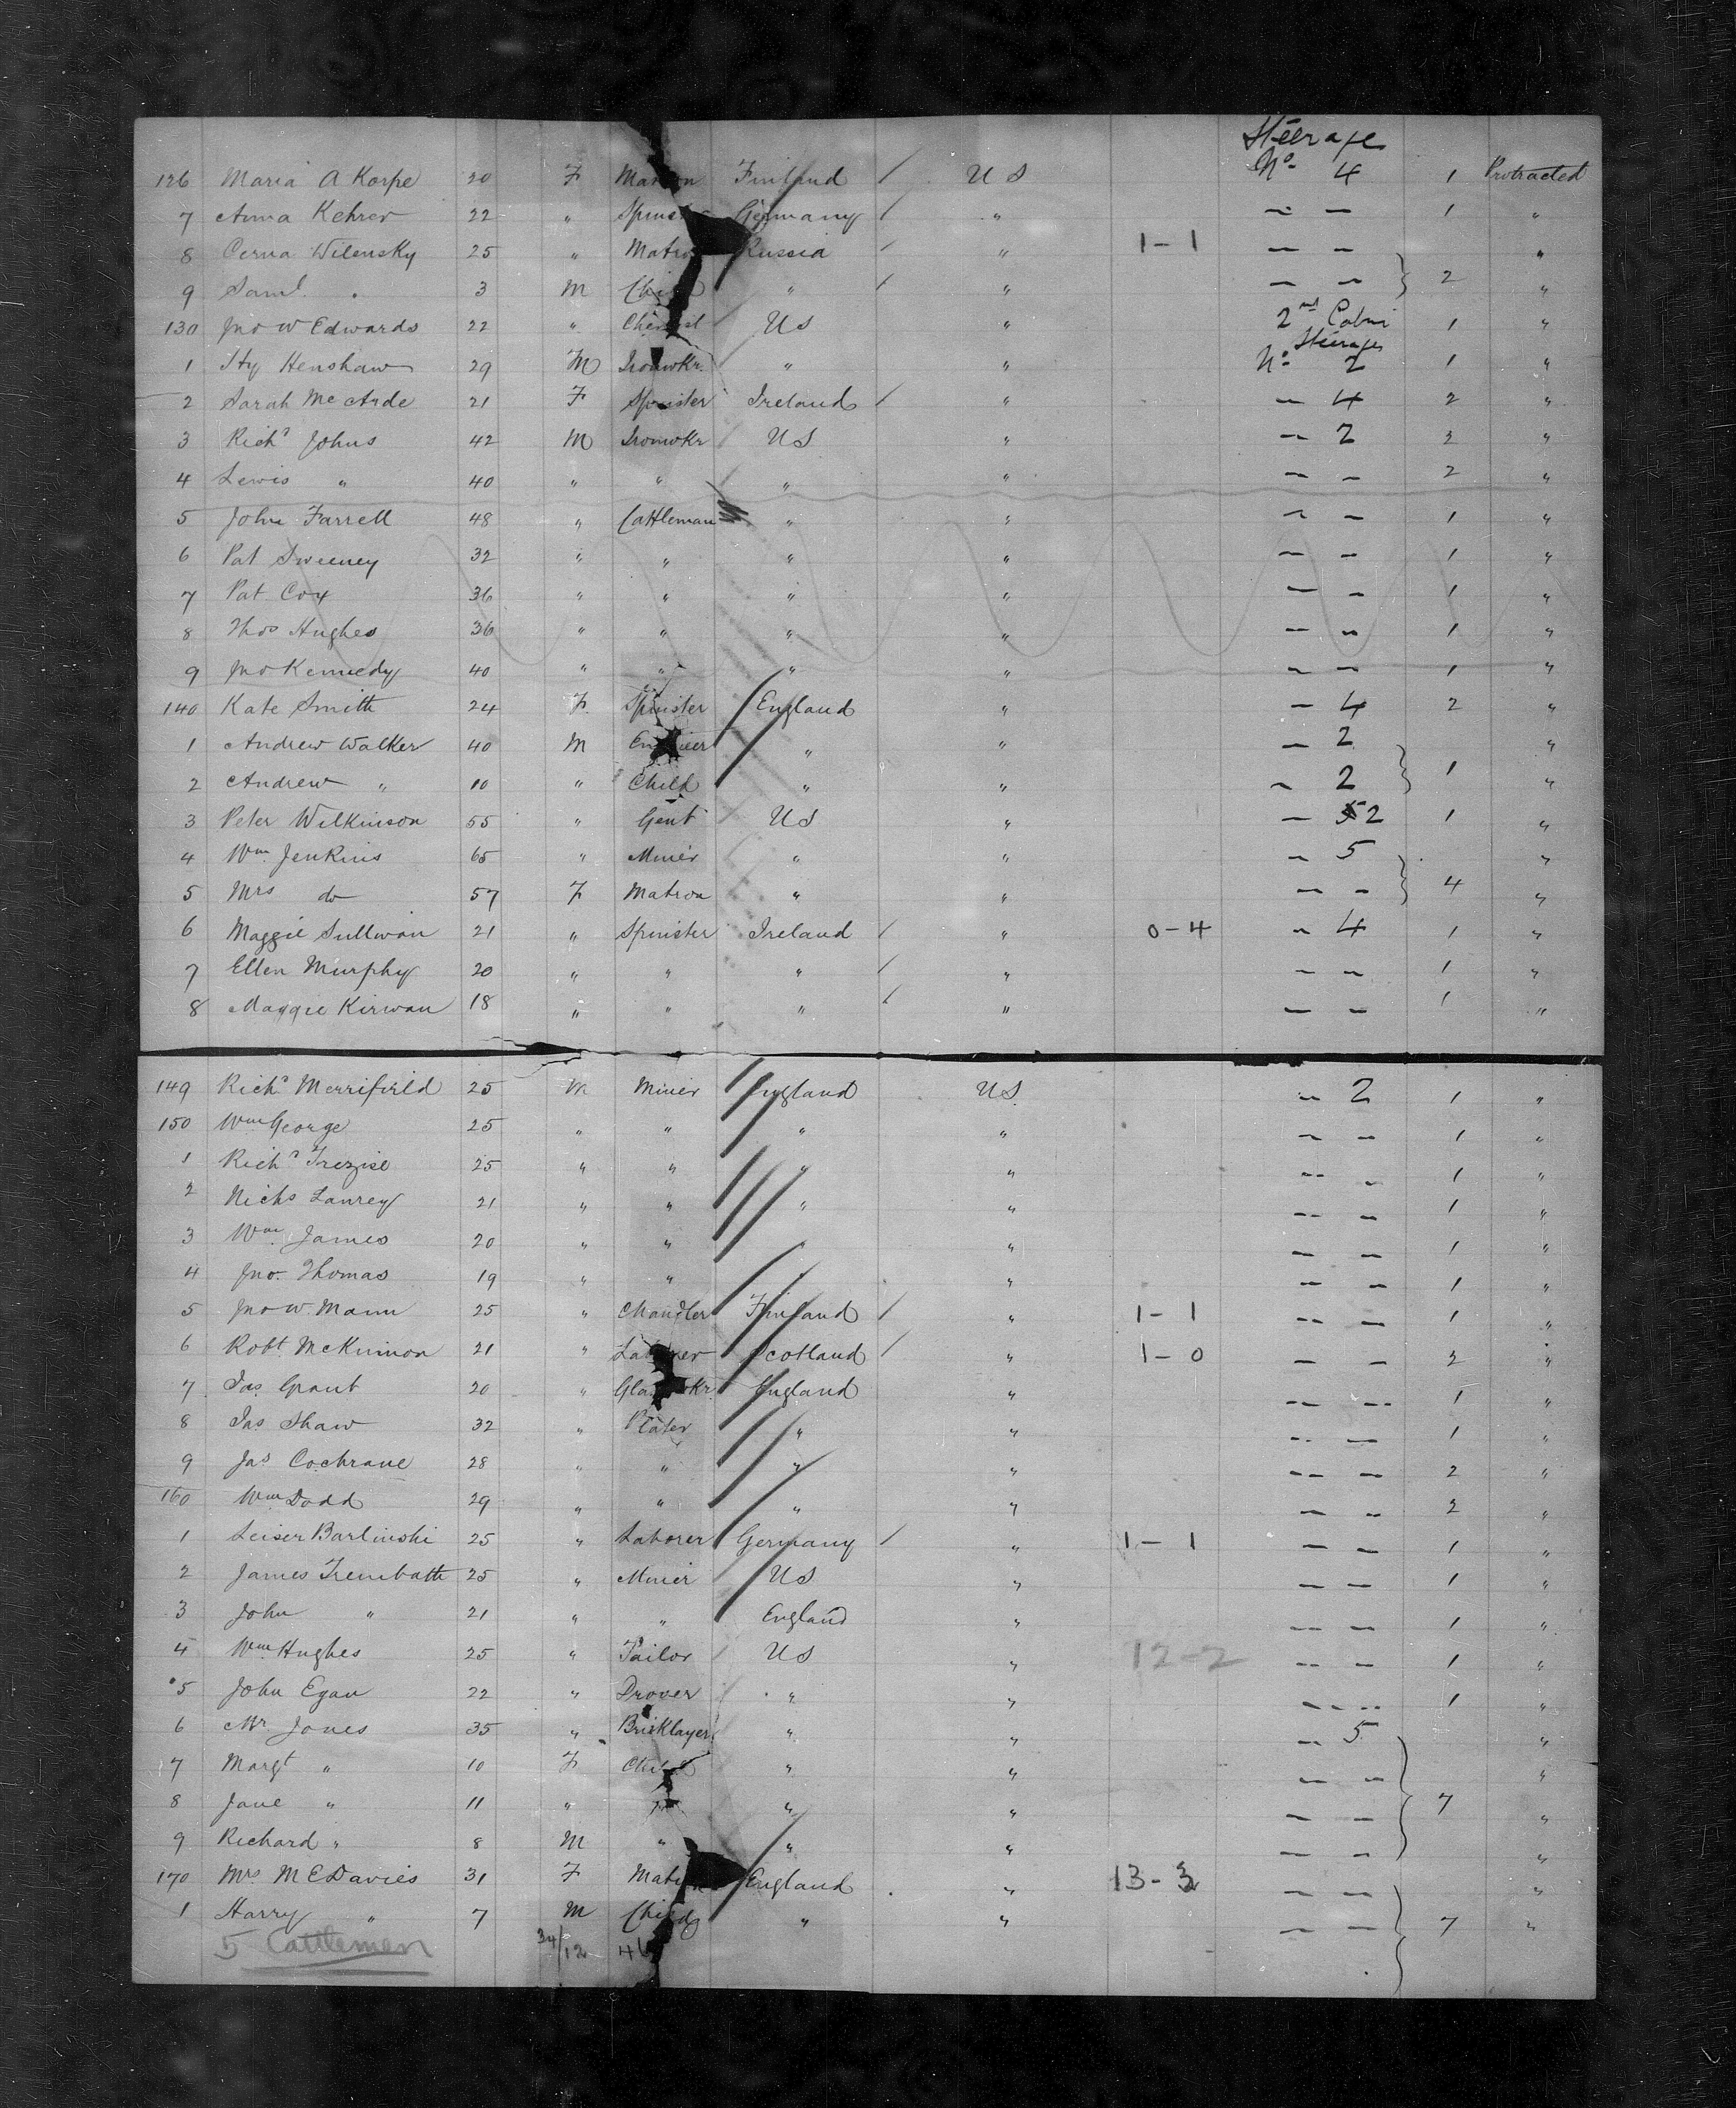 Steerage
126 Maria A Korpe 20 F Matron Finland / U S No. 4 1 Protracted
7 Anna Kehrer 22 " Spinster Germany / " — — 1 "
8 Cerna Wilensky 25 " Matron Russia / " 1-1 — — "
9 Saml. " 3 M Child " / " — — } 2 "
130 Jno W Edwards 22 " Chemist US " 2nd Cabin 1 "
Steerage
1 Hy Henshaw 29 M Ironwkr. " " No. 2 1 "
2 Sarah Mc Arde 21 F Spinster Ireland / " — 4 2 "
3 Richd Johns 42 M Ironwkr US " — 2 2 "
4 Lewis " 40 " " " " — — 2 "
5 John Farrell 48 " Cattleman " " — — 1 "
6 Pat Sweeney 32 " " " " — — 1 "
7 Pat Cox 36 " " " " — — 1 "
8 Thos Hughes 36 " " " " — — 1 "
9 Jno Kennedy 40 " " " " — — 1 "
140 Kate Smith 24 F. Spinster England " — 4 2 "
1 Andrew Walker 40 M Engineer " " — 2 "
2 Andrew " 10 " Child " " — 2 } 1 "
3 Peter Wilkinson 55 " Gent US " — 2 1 "
4 Wm. Jenkins 65 " Miner " " — 5 "
5 Mrs do 57 F Matron " " — — } 4 "
6 Maggie Sullivan 21 " Spinster Ireland / " 0-4 — 4 1 "
7 Ellen Murphy 20 " " " / " — — 1 "
8 Maggie Kirwan 18 " " " / " — — 1 "
149 Richd Merrifield 25 M Miner England US. — 2 1 "
150 Wm George 25 " " " " — — 1 "
1 Richd Trezise 25 " " " " — — 1 "
2 Nichs Lanrey 21 " " " " — — 1 "
3 Wm. James 20 " " " — — 1 "
4 Jno. Thomas 19 " " " — — 1 "
5 Jno W. Mann 25 " Chandler Finland / " 1-1 — — 1 "
6 Robt. McKinnon 21 " Laborer Scotland / " 1-0 — — 2 "
7 Jas. Grant 20 " Glasswkr. England " — — 1 "
8 Jas Shaw 32 " Plater " " — — 1 "
9 Jas Cochrane 28 " " " " — — 2 "
160 Wm Dodd 29 " " " " — — 2 "
1 Leiser Barlinski 25 " Laborer Germany / " 1-1 — — 1 "
2 James Trembath 25 " Miner US " — — 1 "
3 John " 21 " " England " — — 1 "
4 Wm Hughes 25 " Tailor US " 12-2 — — 1 "
5 John Egan 22 " Drover " " — — 1 "
6 Mr. Jones 35 " Bricklayer " " — 5 "
7 Margt " 10 F Child " " — — "
8 Jane " 11 " " " " — — } 7 "
9 Richard " 8 M " " " — — "
170 Mrs M E Davies 31 F Matron England " 13-3 — — "
1 Harry " 7 M Child " " — — } 7 "
5 Cattlemen 34/12 46